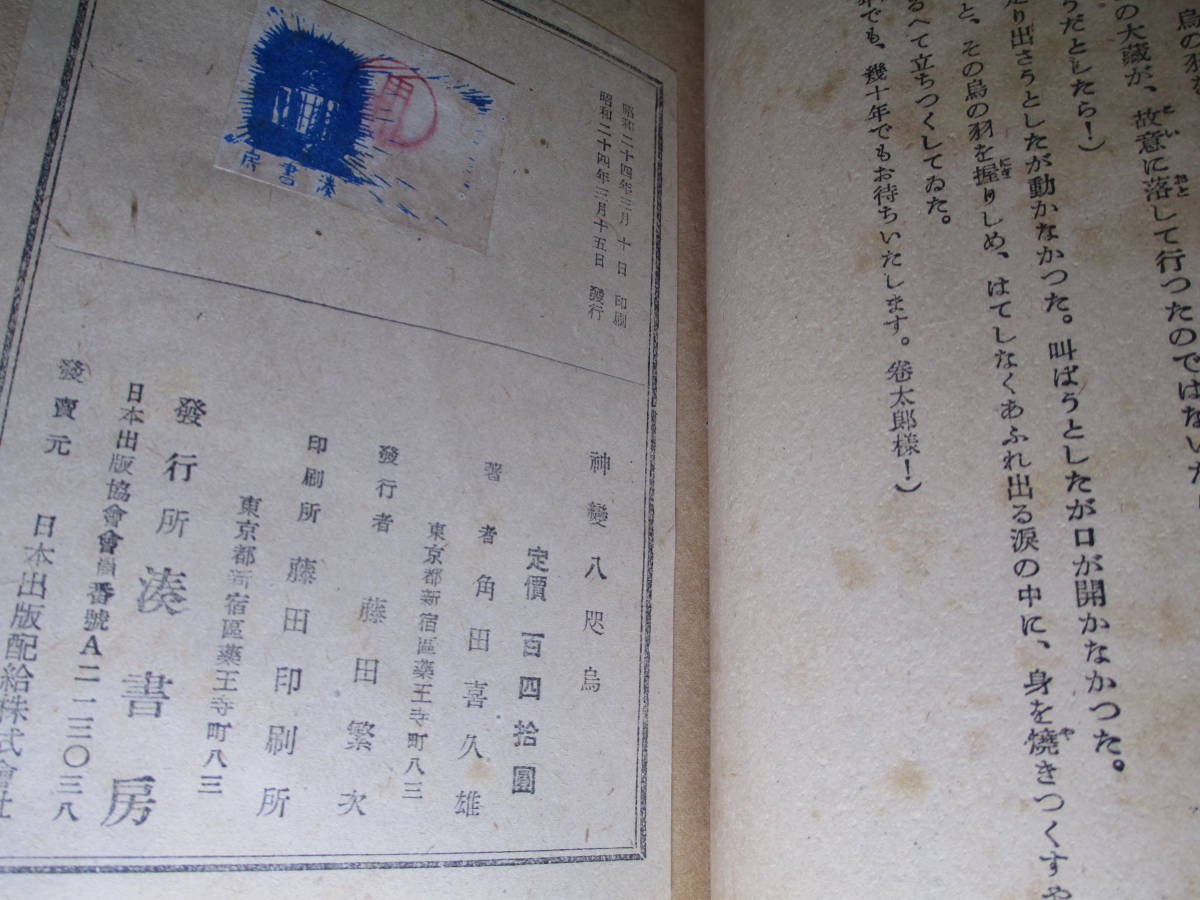 烏の羽を
の大藏が、故意に落して行つたのではないだ
うだとしたら！）
走り出さうとしたが動かなかつた。叫ばうとしたが口が開かなかつた。
と、その烏の羽を握りしめ、はてしなくあふれ出る涙の中に、身を燒きつくすや
るへて立ちつくしてゐた。
年でも、幾十年でもお待ちいたします。卷太郎樣！）
昭和二十四年三月十日 印刷
昭和二十四年三月十五日 發行
湊書房
神變八咫烏
定價 百四拾圓
著者 角田喜久雄
東京都新宿區藥王寺町八三
發行者 藤田繁次
印刷所 藤田印刷所
東京都新宿區藥王寺町八三
發行所 湊書房
日本出版協會會員番號A二一三〇三八
發賣元 日本出版配給株式會社